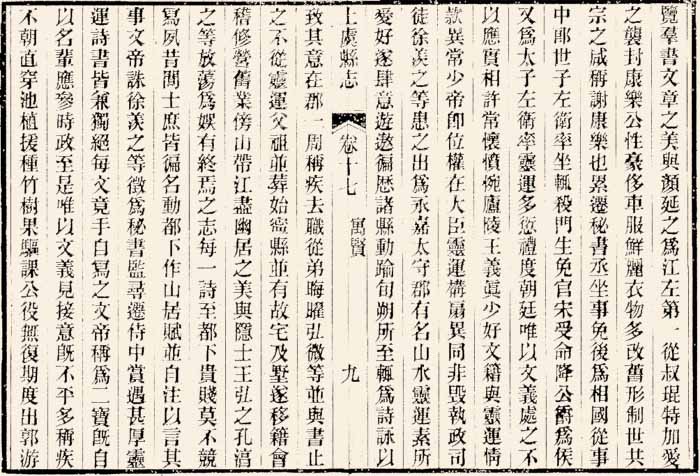 覽羣書文章之美與顏延之爲江左第一從叔琨特加愛
之襲封康樂公性豪侈車服鮮麗衣物多改舊形制世共
宗之咸稱謝康樂也累遷秘書丞坐事免後爲相國從事
中郎世子左衛率坐輒殺門生免官宋受命降公爵爲侯
又爲太子左衛率靈運多愆禮度朝廷唯以文義處之不
以應實相許常懷憤惋廬陵王義眞少好文籍與靈運情
款異常少帝卽位權在大臣靈運構扇異同非毀執政司
徒徐羡之等患之出爲永嘉太守郡有名山水靈運素所
愛好遂肆意遊遨徧歷諸縣動踰旬朔所至輒爲詩詠以
上虞縣志 卷十七 寓賢 九
致其意在郡一周稱疾去職從弟晦曜弘微等並與書止
之不從靈運父祖並葬始寧縣並有故宅及墅遂移籍會
稽修營舊業傍山帶江盡幽居之美與隱士王弘之孔淳
之等放蕩爲娛有終焉之志每一詩至都下貴賤莫不競
寫夙昔閒士庶皆徧名動都下作山居賦並自注以言其
事文帝誅徐羡之等徵爲秘書監尋遷侍中賞遇甚厚靈
運詩書皆兼獨絕每文竟手自寫之文帝稱爲二寶旣自
以名輩應參時政至是唯以文義見接意旣不平多稱疾
不朝直穿池植援種竹樹果驅課公役無復期度出郭游